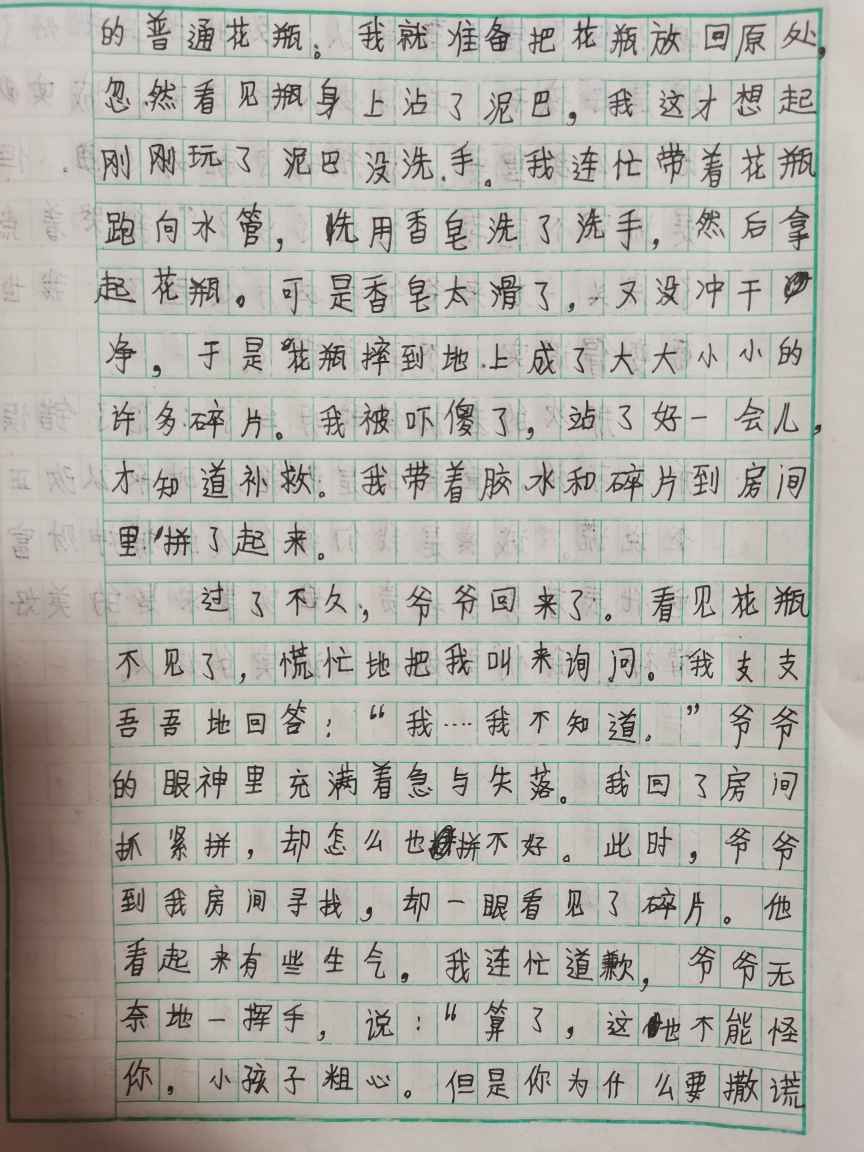 的普通花瓶。我就准备把花瓶放回原处,
忽然看见瓶身上沾了泥巴,我这才想起
刚刚玩了泥巴没洗手。我连忙带着花瓶
跑向水管,先用香皂洗了洗手,然后拿
起花瓶。可是香皂太滑了,又没冲干
净,于是花瓶摔到地上成了大大小小的
许多碎片。我被吓傻了,站了好一会儿,
才知道补救。我带着胶水和碎片到房间
里拼了起来。
过了不久,爷爷回来了。看见花瓶
不见了,慌忙地把我叫来询问。我支支
吾吾地回答:“我……我不知道.”爷爷
的眼神里充满着急与失落。我回了房间
抓紧拼,却怎么也拼不好。此时,爷爷
到我房间寻找,却一眼看见了碎片。他
看起来有些生气。我连忙道歉,爷爷无
奈地一挥手,说:“算了,这也不能怪
你,小孩子粗心。但是你为什么要撒谎